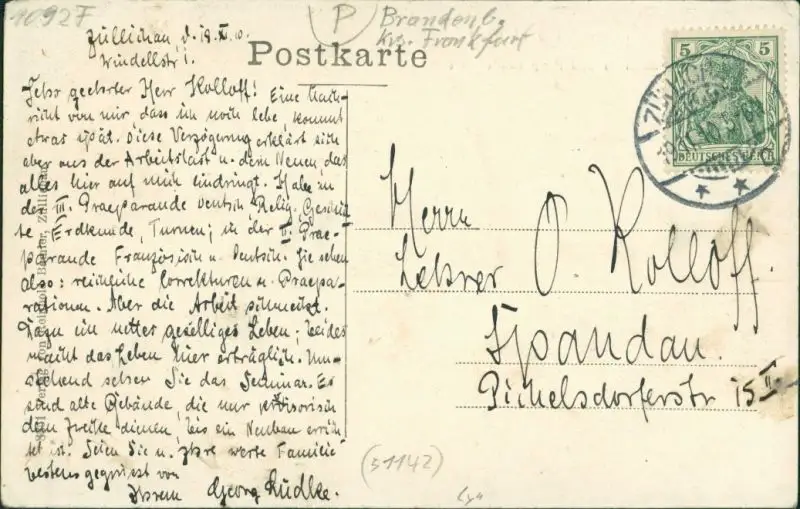 10927
P Brandenb.
Krs. Frankfurt
Züllichau, d. 19. XI. 10.
Windellstr 1.
Postkarte
Sehr geehrter Herr Kolloff! Eine Nach-
richt von mir, dass ich noch lebe, kommt
etwas spät. Diese Verzögerung erklärt sich
aber aus der Arbeitslast u. dem Neuen, das
alles hier auf mich eindringt. Habe in
der III. Praeparande Deutsch Relig. Geschich
te Erdkunde, Turnen; in der II. Prae-
parande Französisch u. Deutsch. Sie sehen
also: reichliche Correkturen u. Praepa-
rationen. Aber die Arbeit schmeckt.
Dazu ein nettes geselliges Leben; beides
macht das Leben hier erträglich. Um-
stehend sehen Sie das Seminar. Es
sind alte Gebäude, die nur provisorisch
dem Zwecke dienen, bis ein Neubau errich
tet ist. Seien Sie u. Ihre werte Familie
bestens gegrüsst von
Ihrem Georg Lüdke.
Herrn
Lehrer O. Kolloff.
Spandau.
Pichelsdorferstr 15 II
5 5
DEUTSCHES REICH
(31142)
Verlag von
Züllichau